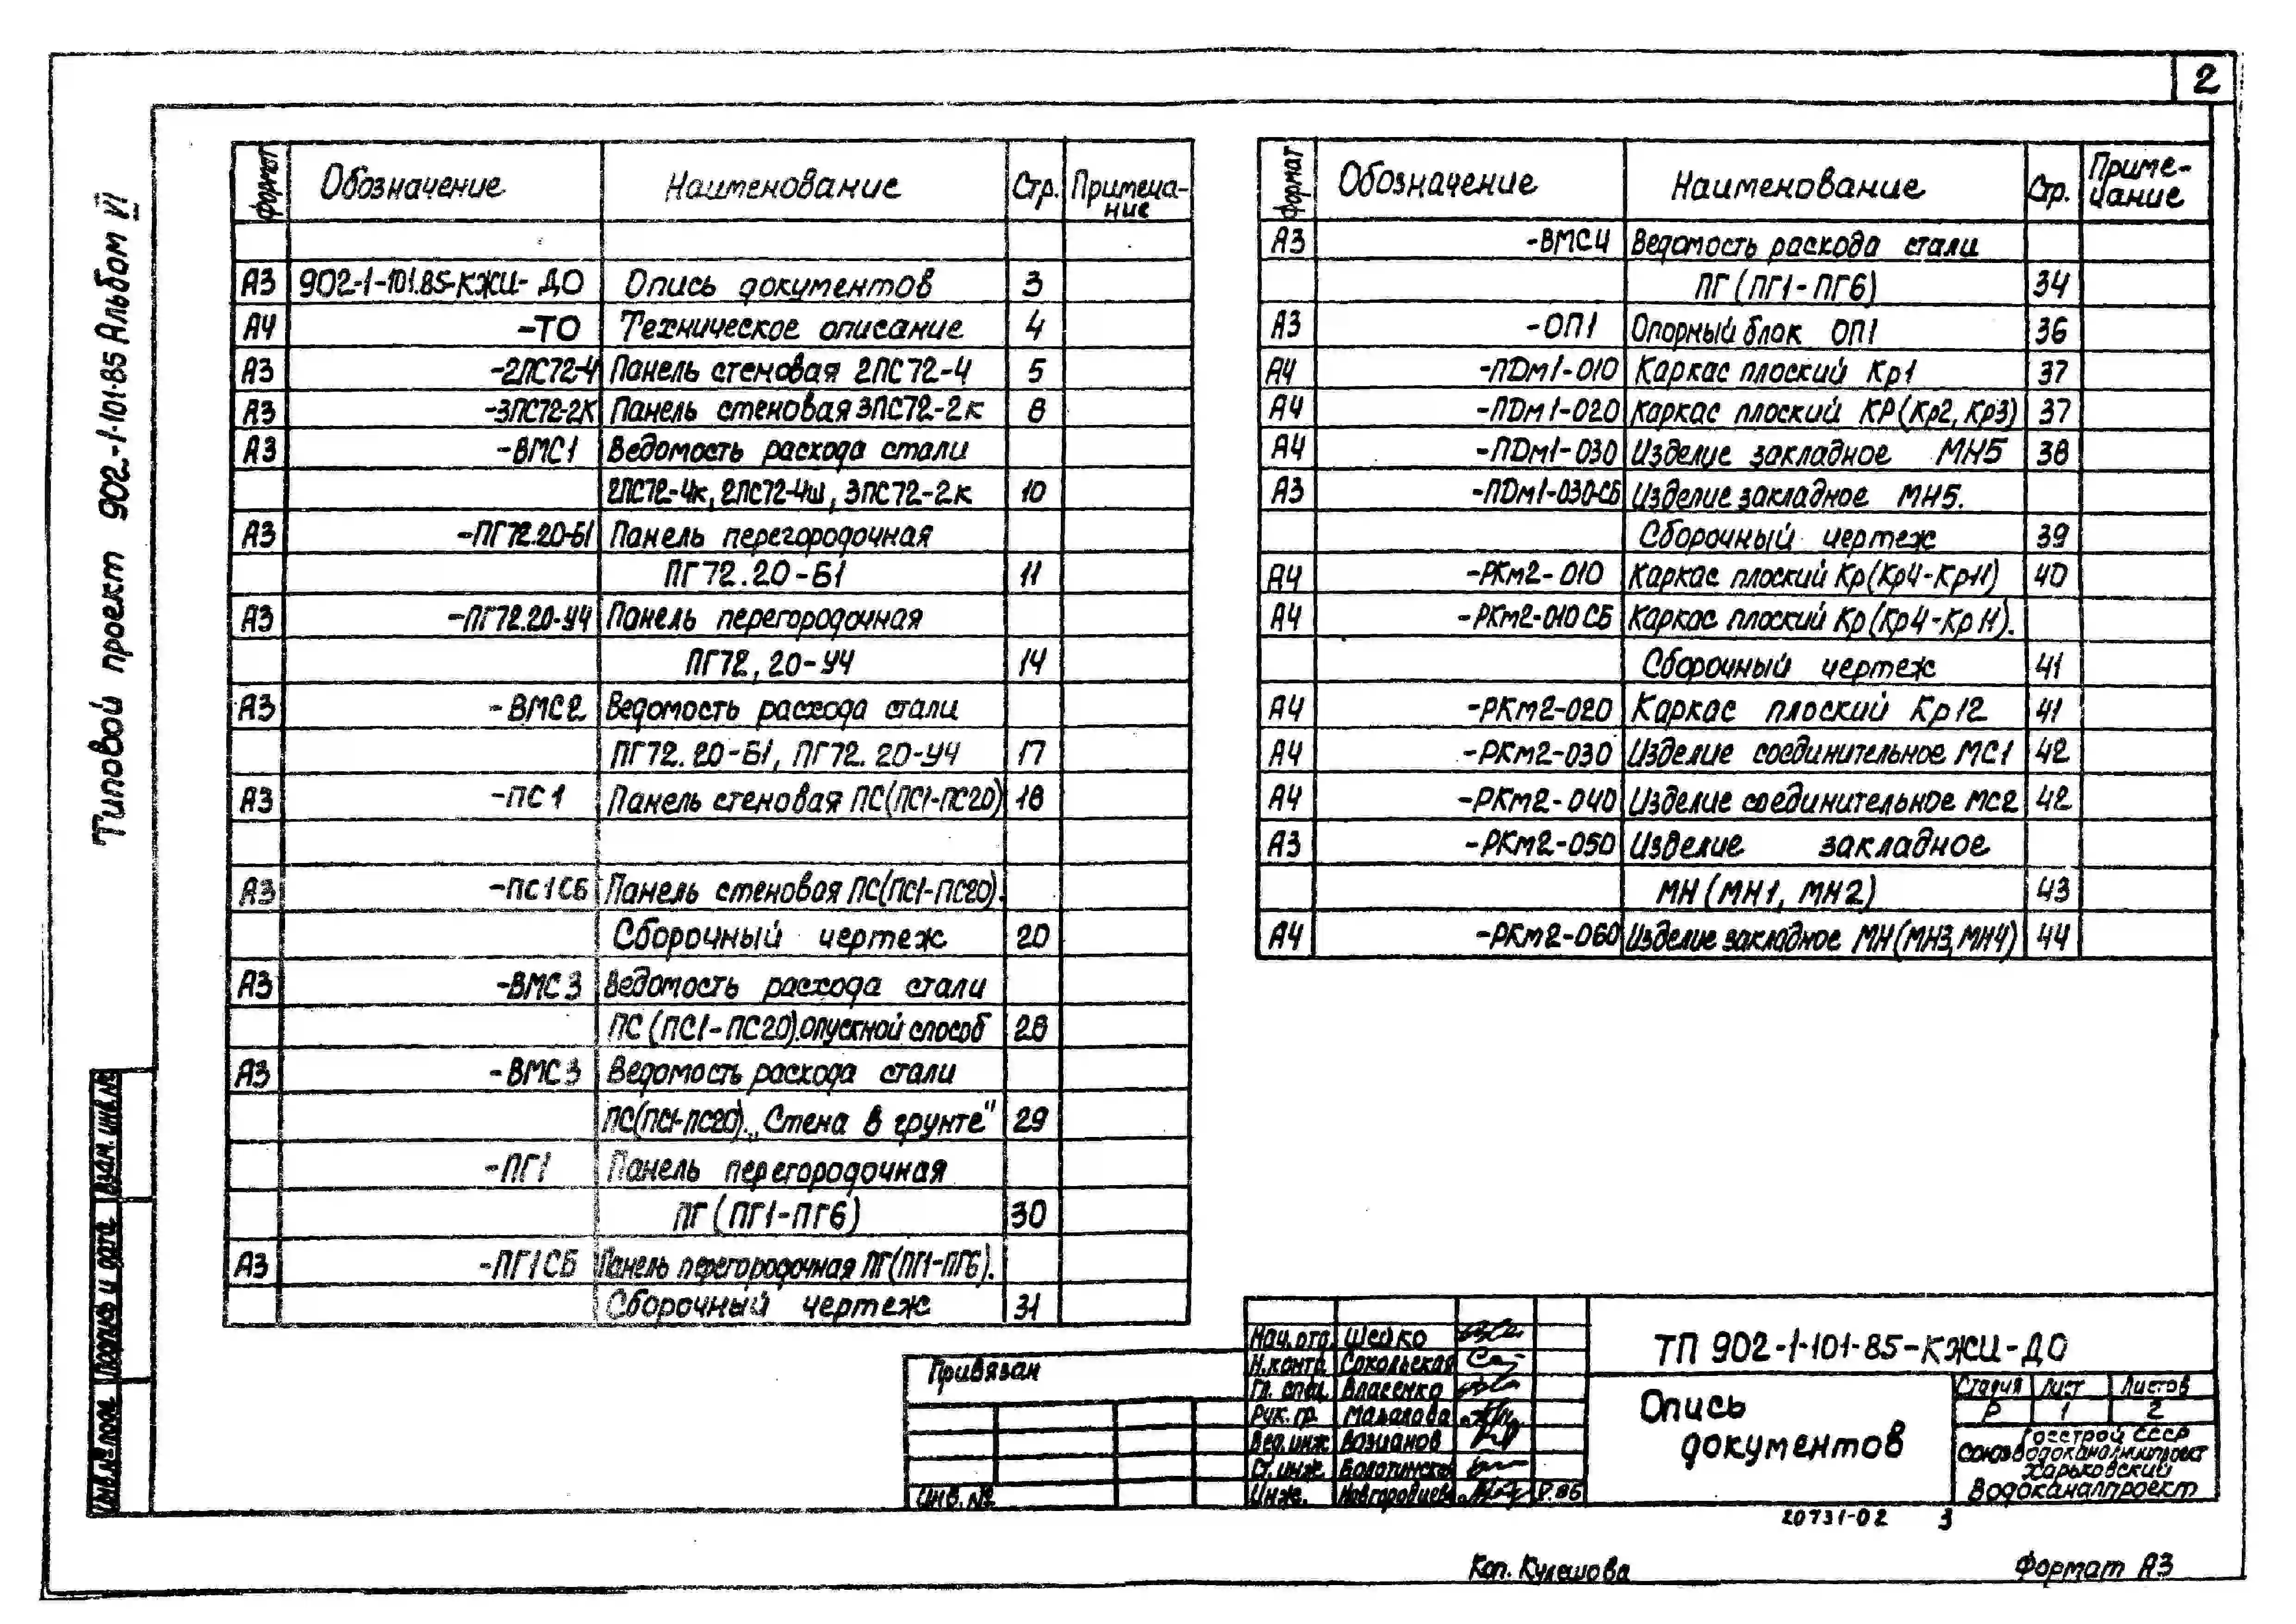 2
Типовой проект 902-1-101.85 Альбом VI
Формат Обозначение Наименование Стр. Примеча-
ние
А3 902-1-101.85-КЖИ-ДО Опись документов 3
А4 -ТО Техническое описание 4
А3 -2ПС72-4 Панель стеновая 2ПС72-4 5
А3 -3ПС72-2К Панель стеновая 3ПС72-2к 8
А3 -ВМС1 Ведомость расхода стали
2ПС72-4к, 2ПС72-4ш, 3ПС72-2к 10
А3 -ПГ72.20-Б1 Панель перегородочная
ПГ72.20-Б1 11
А3 -ПГ72.20-У4 Панель перегородочная
ПГ72,20-У4 14
А3 -ВМС2 Ведомость расхода стали
ПГ72.20-Б1, ПГ72.20-У4 17
А3 -ПС1 Панель стеновая ПС(ПС1-ПС20) 18
А3 -ПС1СБ Панель стеновая ПС(ПС1-ПС20).
Сборочный чертеж 20
А3 -ВМС3 Ведомость расхода стали
ПС (ПС1-ПС20).Опускной способ 28
А3 -ВМС3 Ведомость расхода стали
ПС(ПС1-ПС20). „Стена в грунте" 29
-ПГ1 Панель перегородочная
ПГ (ПГ1-ПГ6) 30
А3 -ПГ1СБ Панель перегородочная ПГ(ПГ1-ПГ6).
Сборочный чертеж 31
Формат Обозначение Наименование Стр. Приме-
чание
А3 -ВМС4 Ведомость расхода стали
ПГ (ПГ1-ПГ6) 34
А3 -ОП1 Опорный блок ОП1 36
А4 -ПDм1-010 Каркас плоский Кр1 37
А4 -ПDм1-020 Каркас плоский КР(Кр2, Кр3) 37
А4 -ПDм1-030 Изделие закладное МН5 38
А3 -ПDм1-030-СБ Изделие закладное МН5.
Сборочный чертеж 39
А4 -РКм2-010 Каркас плоский Кр(Кр4-Кр11) 40
А4 -РКм2-010 СБ Каркас плоский Кр(Кр4-Кр11).
Сборочный чертеж 41
А4 -РКм2-020 Каркас плоский Кр12 41
А4 -РКм2-030 Изделие соединительное МС1 42
А4 -РКм2-040 Изделие соединительное МС2 42
А3 -РКм2-050 Изделие закладное
МН (МН1, МН2) 43
А4 -РКм2-060 Изделие закладное МН(МН3, МН4) 44
Взам. инв.№
Подпись и дата
Инв.№ подл.
Привязан
Инв. №
Нач. отд. Шейко
Н.контр. Сокольская
Гл. спец. Власенко
Рук. гр. Малахова
Вед. инж Вазианов
Ст. инж.
Инж.
ТП 902-1-101-85-КЖИ-ДО
Опись
документов
Стадия Лист Листов
Р 1 2
Госстрой СССР
Союзводоканалниипроект
Харьковский
Водоканалпроект
20731-02 3
Коп. Кулешова
Формат А3